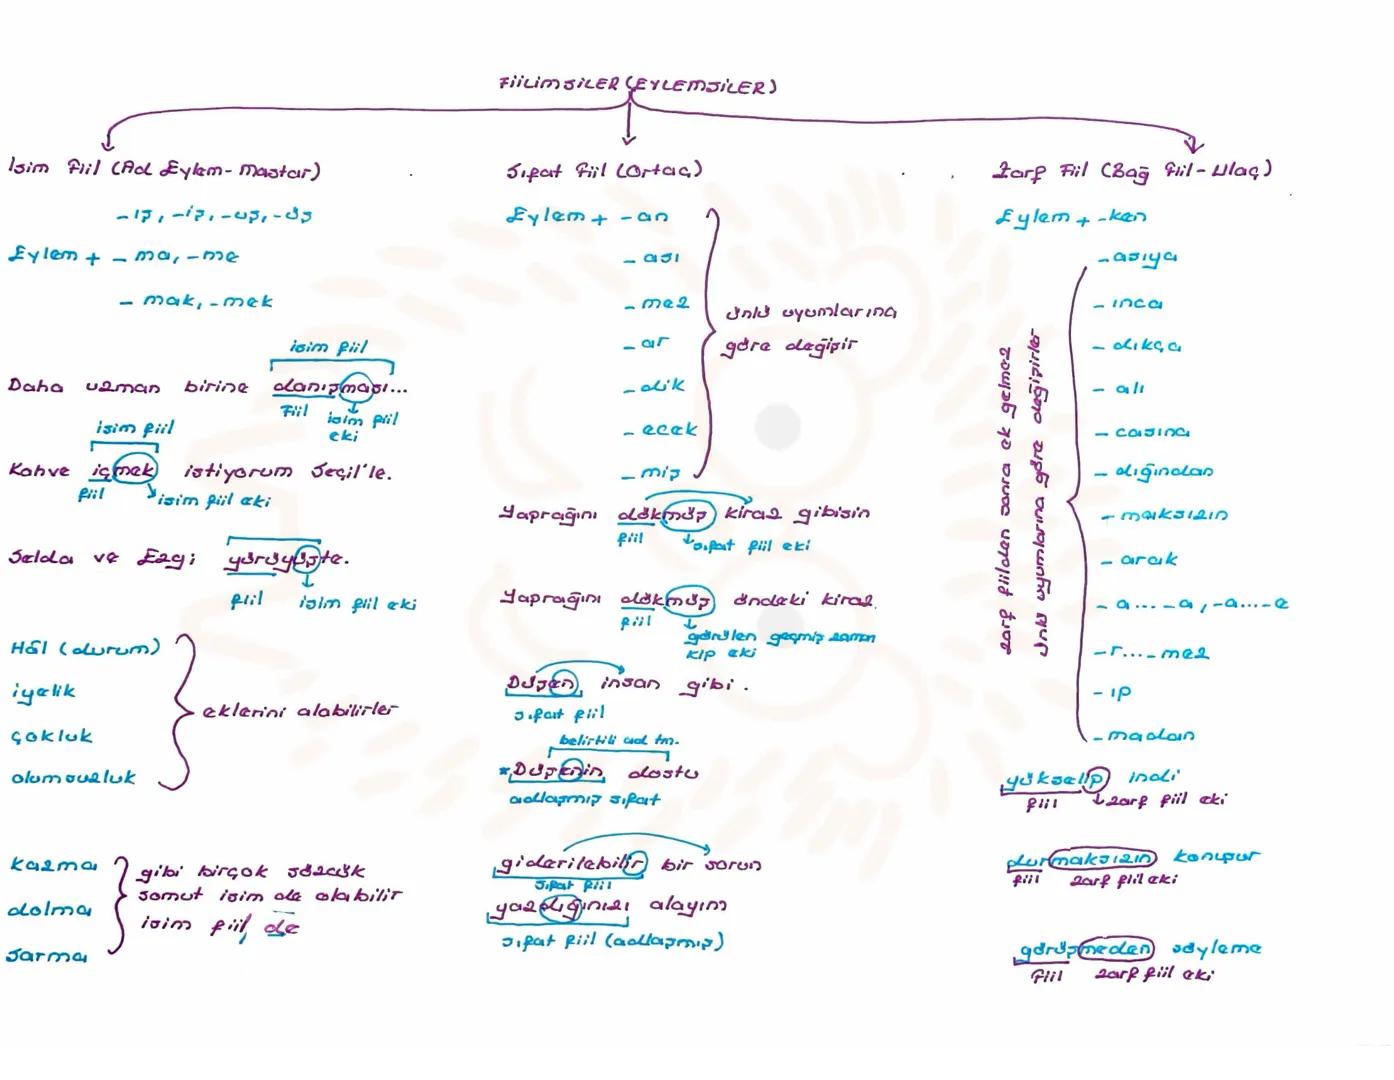 FİİLİMSİLER (EYLEMSİLER)
İsim Fiil (Ad Eylem-Mastar)
-ış, -iş, -uş, -üş
Eylem + -ma, -me
-mak, -mek
isim fiil
Daha uzman birine danışması...
Fiil
isim fiil eki
isim fiil
Kahve içmek istiyorum Seçil'le.
fiil
isim fiil eki
Selda ve Ezgi yürüyüşte.
fiil
isim fiil eki
Hâl (durum)
iyelik
çokluk
olumsuzluk
eklerini alabilirler
kazma
dolma
sarma
gibi birçok sözcük
somut isim de olabilir
isim fiil de
Sıfat Fiil (Ortaç)
Eylem + -an
-ası
-mez
-ar
-dik
-ecek
-miş
ünlü uyumlarına
göre değişir
Yaprağını dökmüş kiraz gibisin
fiil
sıfat fiil eki
Yaprağını dökmüş öndeki kiraz.
fiil
görülen geçmiş zaman
kip eki
Düşen insan gibi.
sıfat fiil
belirtili ad tm.
*Düşenin dostu
adlaşmış sıfat
giderilebilir bir sorun
sıfat fiil
yazdığınızı alayım
sıfat fiil (adlaşmış)
Zarf Fiil (Bağ fiil-Ulaç)
Eylem + -ken
-asıya
-ınca
-dıkça
-alı
-casına
-dığından
-maksızın
-arak
-a...-a, -a...-e
-r...-mez
-ıp
-madan
zarf fiilden sonra ek gelmez
ünlü uyumlarına göre değişirler
yükselip indi
fiil
zarf fiil eki
durmaksızın konuşur
fiil
zarf fiil eki
görüşmeden söyleme
fiil
zarf fiil eki